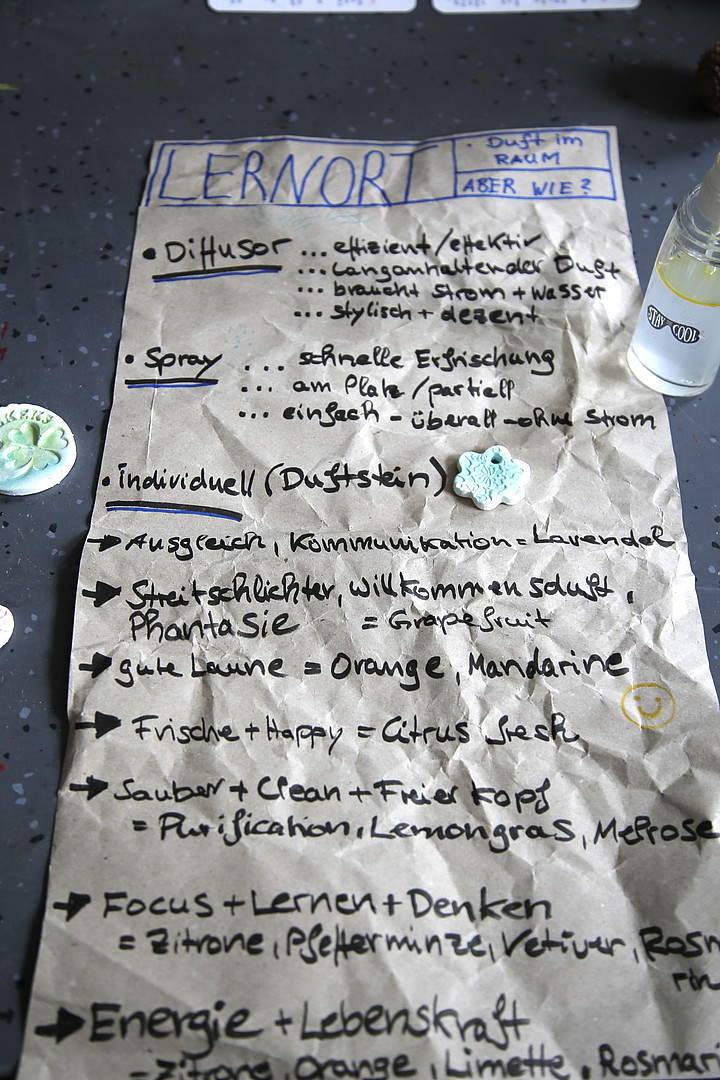 LERNORT
· Duft im
RAUM
ABER WIE?
• Diffusor ... effizient/effektiv
... langanhaltender Duft
... braucht Strom + Wasser
... stylisch + dezent
• Spray ... schnelle Erfrischung
... am Platz/partiell
... einfach - überall - ohne Strom
STAY COOL
• individuell (Duftstein)
→ Ausgleich, Kommunikation = Lavendel
→ Streitschlichter, Willkommensduft,
Phantasie = Grapefruit
→ gute Laune = Orange, Mandarine
→ Frische + Happy = Citrus fresh
→ Sauber + Clean + Freier Kopf
= Purification, Lemongras, Melrose
→ Focus + Lernen + Denken
= Zitrone, Pfefferminze, Vetiver, Rosm
rin
→ Energie + Lebenskraft
- Zitrone, Orange, Limette, Rosmari